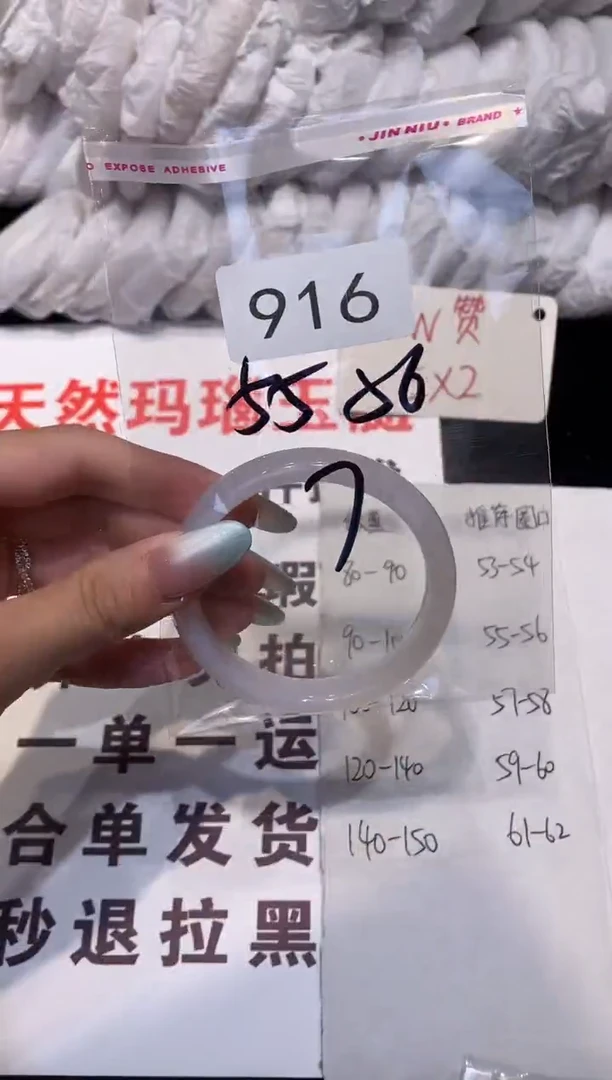 EXPOSE ADHESIVE
•JIN NIU• BRAND
916
N 赞
X2
55 56
7
天然玛瑙玉髓
推荐圈口
80-90 53-54
55-56
57-58
120-140 59-60
140-150 61-62
瑕
拍
一单一运
合单发货
秒退拉黑